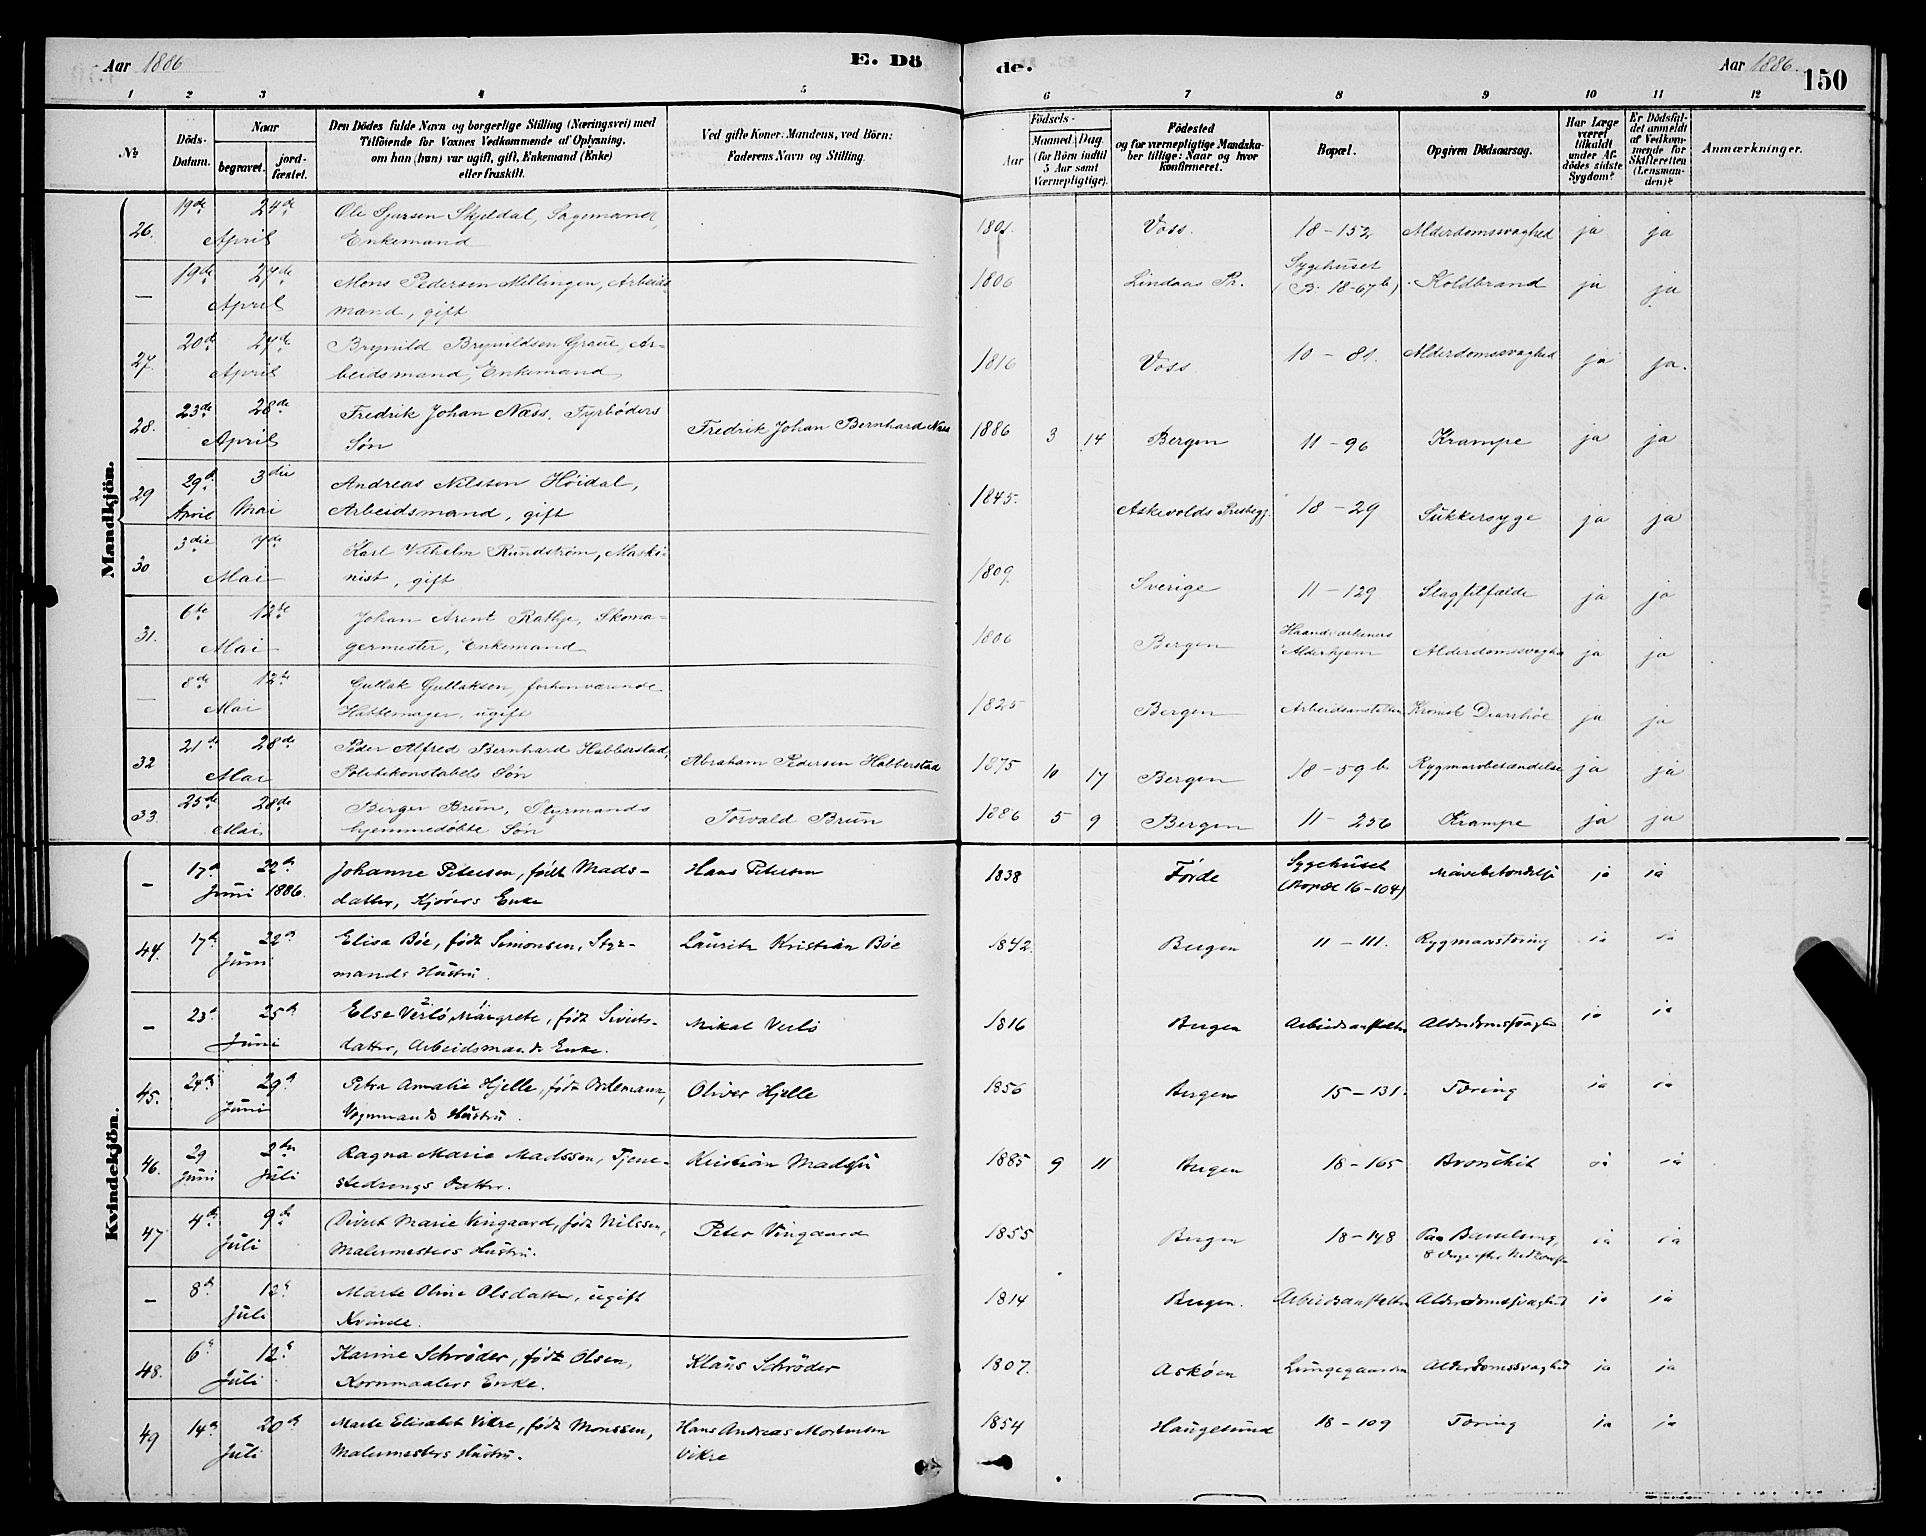 Aar 1886 E. Dö de. Aar 1886. 150
1 2 3 4 5 6 7 8 9 10 11 12
No. Döds-Datum. Naar begravet. jordfæstet. Den Dödes fulde Navn og borgerlige Stilling (Næringsvei) med Tilföiende for Voxnes Vedkommende af Oplysning, om han (hun) var ugift, gift, Enkemand (Enke) eller fraskilt. Ved gifte Koner: Mandens, ved Börn: Faderens Navn og Stilling. Födsels- Aar Maaned. Dag. (for Börn indtil 5 Aar samt Værnepligtige). Födested og for værnepligtige Mandskaber tillige: Naar og hvor konfirmeret. Bopæl. Opgiven Dödsaarsag. Har Læge været tilkaldt under Afdödes sidste Sygdom? Er Dödsfaldet anmeldt af Vedkommende for Skifteretten (Lensmanden)? Anmærkninger.
Mandkjön.
26. 19de 24de April Ole Sjursen Skjeldal, Sagemand, Enkemand 1801. Voss. 18-152 Alderdomssvaghed ja ja
— 19de 27de April Mons Pedersen Mellingen, Arbeidsmand, gift 1806 Lindaas Pr. Sygehuset (B. 18-67b) Koldbrand ja ja
27. 20de 27de April Brynild Brynildsen Graue, Arbeidsmand, Enkemand 1816 Voss 10-81. Alderdomssvaghed ja ja.
28. 23de 28de April Fredrik Johan Næss, Fyrbøders Søn Fredrik Johan Bernhard Næss 1886 3 14 Bergen 11-96 Krampe ja ja
29 29d. April 3die Mai Andreas Nilssen Høidal, Arbeidsmand, gift 1845. Askevolds Prestegj. 18-29 Sukkersyge ja ja
30 3die 7de Mai Karl Vilhelm Rundstrøm, Maskinist, gift 1809. Sverige 11-129 Slagtilfælde ja ja
31. 6te 12te Mai Johan Arent Rathje, Skomagermester, Enkemand 1806 Bergen Haandværkeres Alderhjem Alderdomssvaghed ja ja
— 8de 12te Mai Gullak Gullaksen, forhenværende Hattemager, ugift 1825 Bergen Arbeidsanstalten Kronisk Diarrhöe ja ja
32 21de 28de Mai Peder Alfred Bernhard Habberstad, Politikonstabels Søn Abraham Pedersen Habberstad 1875 10 17 Bergen 18-59b Rygmarvbetændelse ja ja
33. 25de 28de Mai Berger Brun, Styrmands hjemmedøbte Søn Torvald Brun 1886 5 9 Bergen 11-256 Krampe ja ja
Kvindekjön.
— 17de 22de Juni 1886. Johanne Petersen, født Madsdatter, Kjørers Enke Hans Petersen 1838 Førde Sygehuset (Bopæl 16-104) Mavebetændelse ja ja
44. 17de 22de Juni Elisa Bøe, født Simonsen, Styrmands Hustru. Lauritz Kristian Bøe 1842. Bergen 11-111. Rygmarvstæring ja ja
— 23d 25de Juni Else Verlo 2 Margrete, født Siverts-datter, Arbeidsmands Enke. Mikal Verlo 1816 Bergen Arbeidsanstalten Alderdomssvaghed ja ja
45. 24de 29de Juni Petra Amalie Hjelle, født Ordemann, Vognmands Hustru. Oliver Hjelle 1856 Bergen 15-131. Tæring ja ja
46. 29 Juni 2den Juli Ragna Marie Madssen, Tjenestedrengs Datter. Kristian Madssen 1885 9 11 Bergen 18-165 Bronchit ja ja
47 4de 9de Juli Marie Vingaard, født Nilssen, Malermesters Hustru. Peter Vingaard 1855 Bergen 18-148 Paa Barselseng, ja ja
— 8de 12te Juli Marte Oline Olsdatter, ugift Kvinde. 1814 Bergen. Arbeidsanstalten Alderdomssvaghed ja ja
48. 6te 12te Juli Karine Schrøder, født Olsen, Kornmaalers Enke. Klaus Schrøder 1807. Askøen Lungegaarden Alderdomssvaghed ja ja
49 14de 20de Juli Marte Elisabet Vikre, født Monssen, Malermesters Hustru. Hans Andreas Mortensen Vikre 1854 Haugesund 18-109 Tæring ja ja